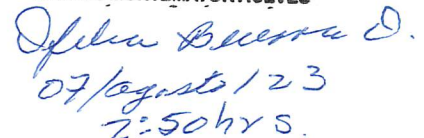 Ofelia Becerra D.
07/agosto/23
7:50hrs.